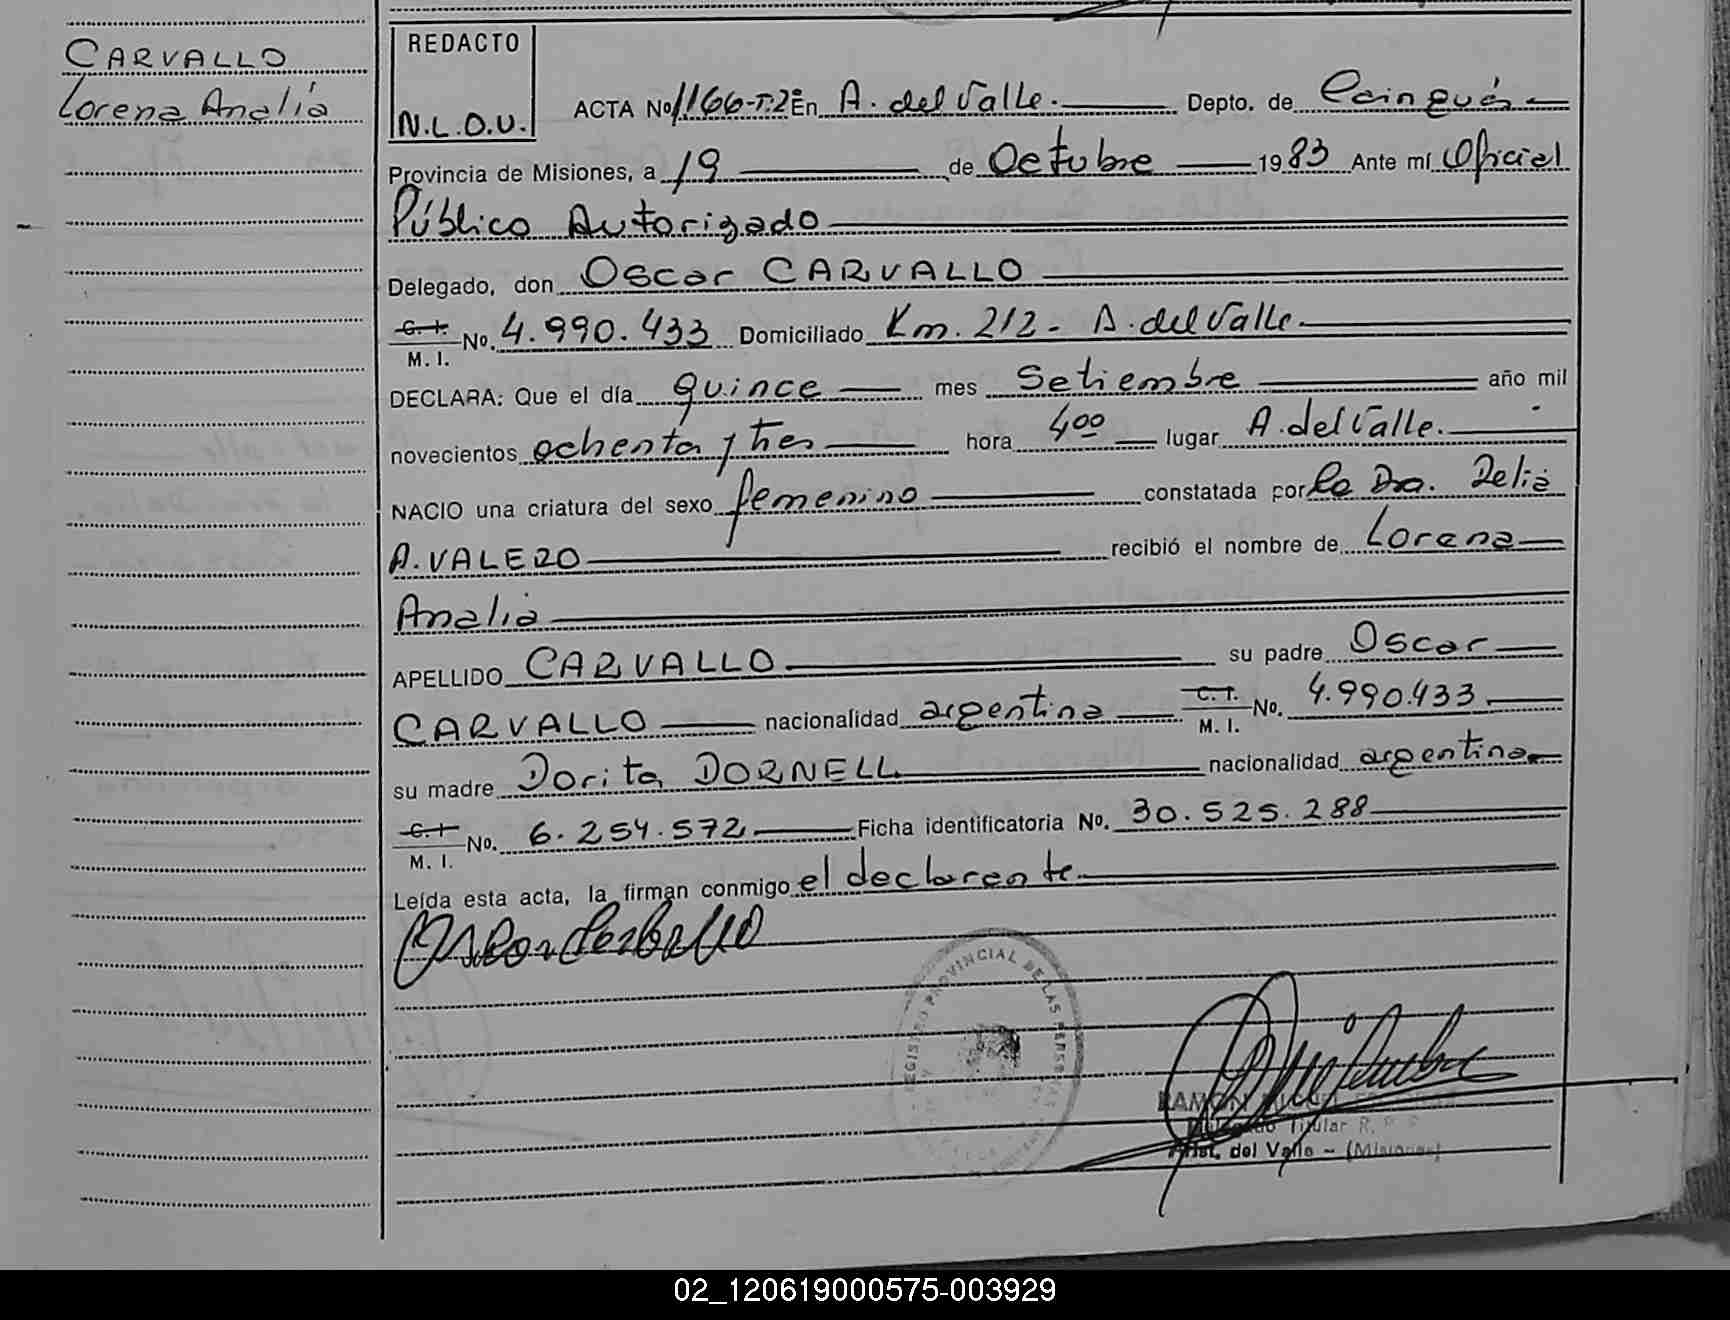 CARVALLO
Lorena Analía
REDACTO
N.L.O.U.
ACTA No 1166-T:2º En A. del Valle. Depto. de Cainguás
Provincia de Misiones, a 19 de Octubre 1983 Ante mí Oficial
Público Autorizado
Delegado, don Oscar CARVALLO
C. I. M. I. No. 4.990.433 Domiciliado Km. 212- A. del Valle.
DECLARA: Que el día quince mes Setiembre año mil
novecientos ochenta y tres hora 4⁰⁰ lugar A. del Valle.
NACIO una criatura del sexo femenino constatada por la Dra. Delia
A. VALERO recibió el nombre de Lorena
Analia
APELLIDO CARVALLO su padre Oscar
CARVALLO nacionalidad argentina C. I. M. I. No. 4.990.433
su madre Dorita DORNELL nacionalidad argentina
C. I. M. I. No. 6.254.572 Ficha identificatoria No. 30.525.288
Leída esta acta, la firman conmigo el declarante
REGISTRO PROVINCIAL DE LAS PERSONAS
RAMON MIGUEL
Delegado Titular R. P.
Arist. del Valle - (Misiones)
02_120619000575-003929